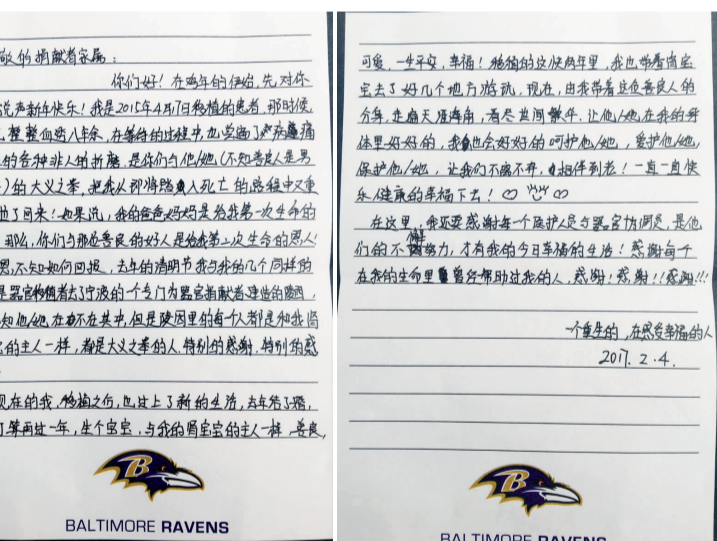 敬的捐献者家属:
你们好!在鸡年的伊始,先对你
说声新年快乐!我是2015年4月7日移植的患者,那时候
,整整血透八年余,在等待的过程中,也受尽了严疾病痛
的各种非人的折磨,是你们与他/她(不知善良人是男
)的大义之举,把我从即将踏入死亡的路程中又重
拉了回来!如果说,我的爸爸妈妈是给我第一次生命的
那么,你们与那位善良的好人是给我第二次生命的恩人!
恩,不知如何回报,去年的清明节我与我的几个同样的
是器官移植者去了宁波的一个专门为器官捐献者建造的陵园,
知他/她在不在其中,但是陵园里的每一个人都是和我肾
宝的主人一样,都是大义之举的人.特别的感谢,特别的感
现在的我,移植之后,也过上了新的生活,去年结了婚,
打算再过一年,生个宝宝,与我的肾宝宝的主人一样善良,
可爱,一生平安,幸福!移植的这快两年里,我也带着肾宝
宝去了好几个地方游玩,现在,由我带着这位善良人的
介身,走遍天涯海角,看尽世间繁华.让他/她在我的身
体里好好的,我也会好好的呵护他/她,爱护他/她,
保护他/她,让我们不离不弃,相伴到老!一直一直快
乐健康的幸福下去!
在这里,我还要感谢每个医护人员与器官协调员,是他
们的不懈努力,才有我的今日幸福的生活!感谢每个
在我的生命里曾经帮助过我的人,感谢!感谢!!感谢!!!
一个重生的,在感受幸福的人
2017.2.4.
B
BALTIMORE RAVENS
B
BALTIMORE RAVENS